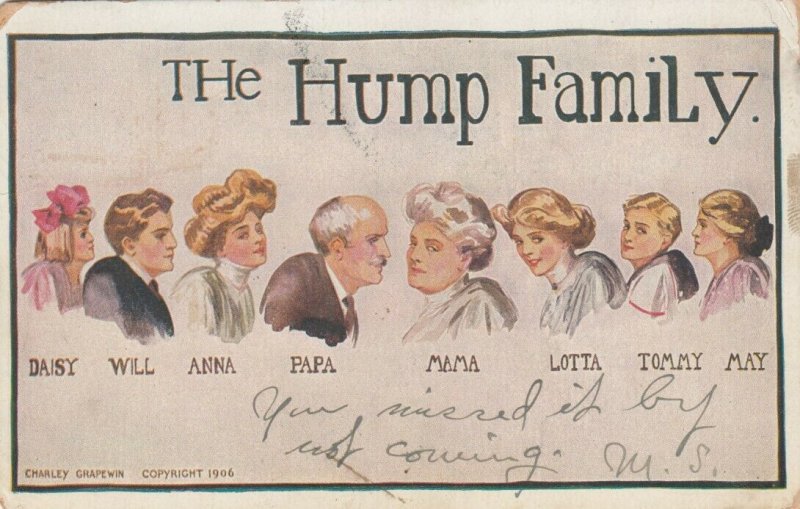 THe Hump Family.
DAISY WILL ANNA PAPA MAMA LOTTA TOMMY MAY
You missed it by
not coming. M. S.
CHARLEY GRAPEWIN COPYRIGHT 1906